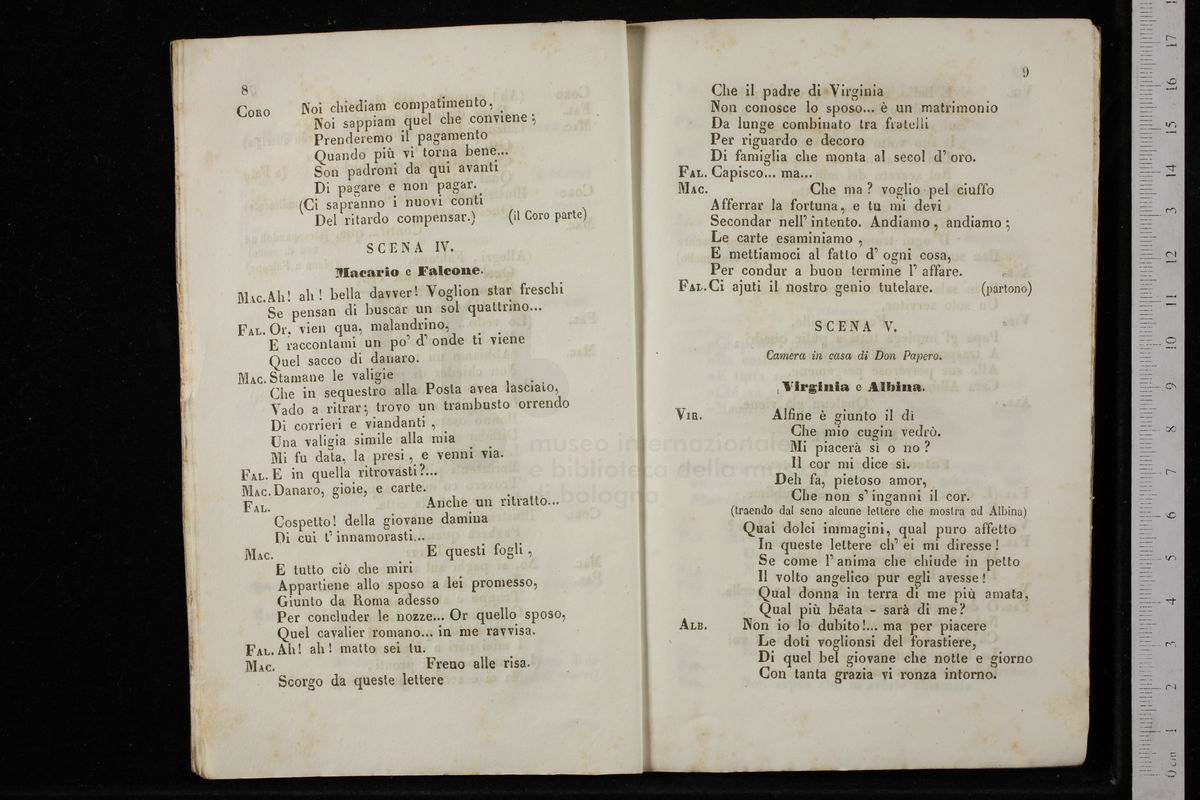 8
CORO Noi chiediam compatimento,
Noi sappiam quel che conviene;
Prenderemo il pagamento
Quando più vi torna bene...
Son padroni da qui avanti
Di pagare e non pagar.
(Ci sapranno i nuovi conti
Del ritardo compensar.) (il Coro parte)
SCENA IV.
Macario e Falcone.
MAC. Ah! ah! bella davver! Voglion star freschi
Se pensan di buscar un sol quattrino...
FAL. Or, vien qua, malandrino,
E raccontami un po' d' onde ti viene
Quel sacco di danaro.
MAC. Stamane le valigie
Che in sequestro alla Posta avea lasciato,
Vado a ritrar; trovo un trambusto orrendo
Di corrieri e viandanti,
Una valigia simile alla mia
Mi fu data, la presi, e venni via.
FAL. E in quella ritrovasti?...
MAC. Danaro, gioie, e carte.
FAL. Anche un ritratto...
Cospetto! della giovane damina
Di cui t' innamorasti...
MAC. E questi fogli,
E tutto ciò che miri
Appartiene allo sposo a lei promesso,
Giunto da Roma adesso
Per concluder le nozze... Or quello sposo,
Quel cavalier romano... in me ravvisa.
FAL. Ah! ah! matto sei tu.
MAC. Freno alle risa.
Scorgo da queste lettere
9
Che il padre di Virginia
Non conosce lo sposo... è un matrimonio
Da lunge combinato tra fratelli
Per riguardo e decoro
Di famiglia che monta al secol d' oro.
FAL. Capisco... ma...
MAC. Che ma? voglio pel ciuffo
Afferrar la fortuna, e tu mi devi
Secondar nell' intento. Andiamo, andiamo;
Le carte esaminiamo,
E mettiamoci al fatto d' ogni cosa,
Per condur a buon termine l' affare.
FAL. Ci ajuti il nostro genio tutelare. (partono)
SCENA V.
Camera in casa di Don Papero.
Virginia e Albina.
VIR. Alfine è giunto il dì
Che mio cugin vedrò.
Mi piacerà sì o no?
Il cor mi dice sì.
Deh fa, pietoso amor,
Che non s' inganni il cor.
(traendo dal seno alcune lettere che mostra ad Albina)
Quai dolci immagini, qual puro affetto
In queste lettere ch' ei mi diresse!
Se come l' anima che chiude in petto
Il volto angelico pur egli avesse!
Qual donna in terra di me più amata,
Qual più bëata - sarà di me?
ALB. Non io lo dubito!... ma per piacere
Le doti voglionsi del forastiere,
Di quel bel giovane che notte e giorno
Con tanta grazia vi ronza intorno.
museo internazionale
e biblioteca della musica
di bologna
0 cm 1 2 3 4 5 6 7 8 9 10 11 12 13 14 15 16 17